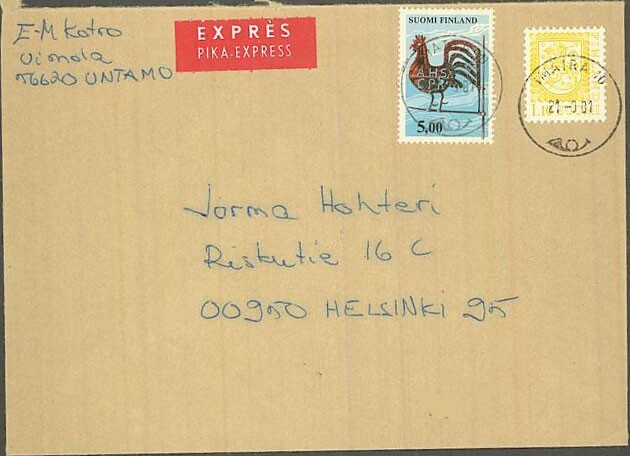 E-M Kotro
Uimola
56620 UNTAMO
EXPRÈS
PIKA-EXPRESS
SUOMI FINLAND
A.H.S.
C.P.R.
5,00
IMATRA 10
Jorma Hohteri
Riskutie 16 C
00950 HELSINKI 95